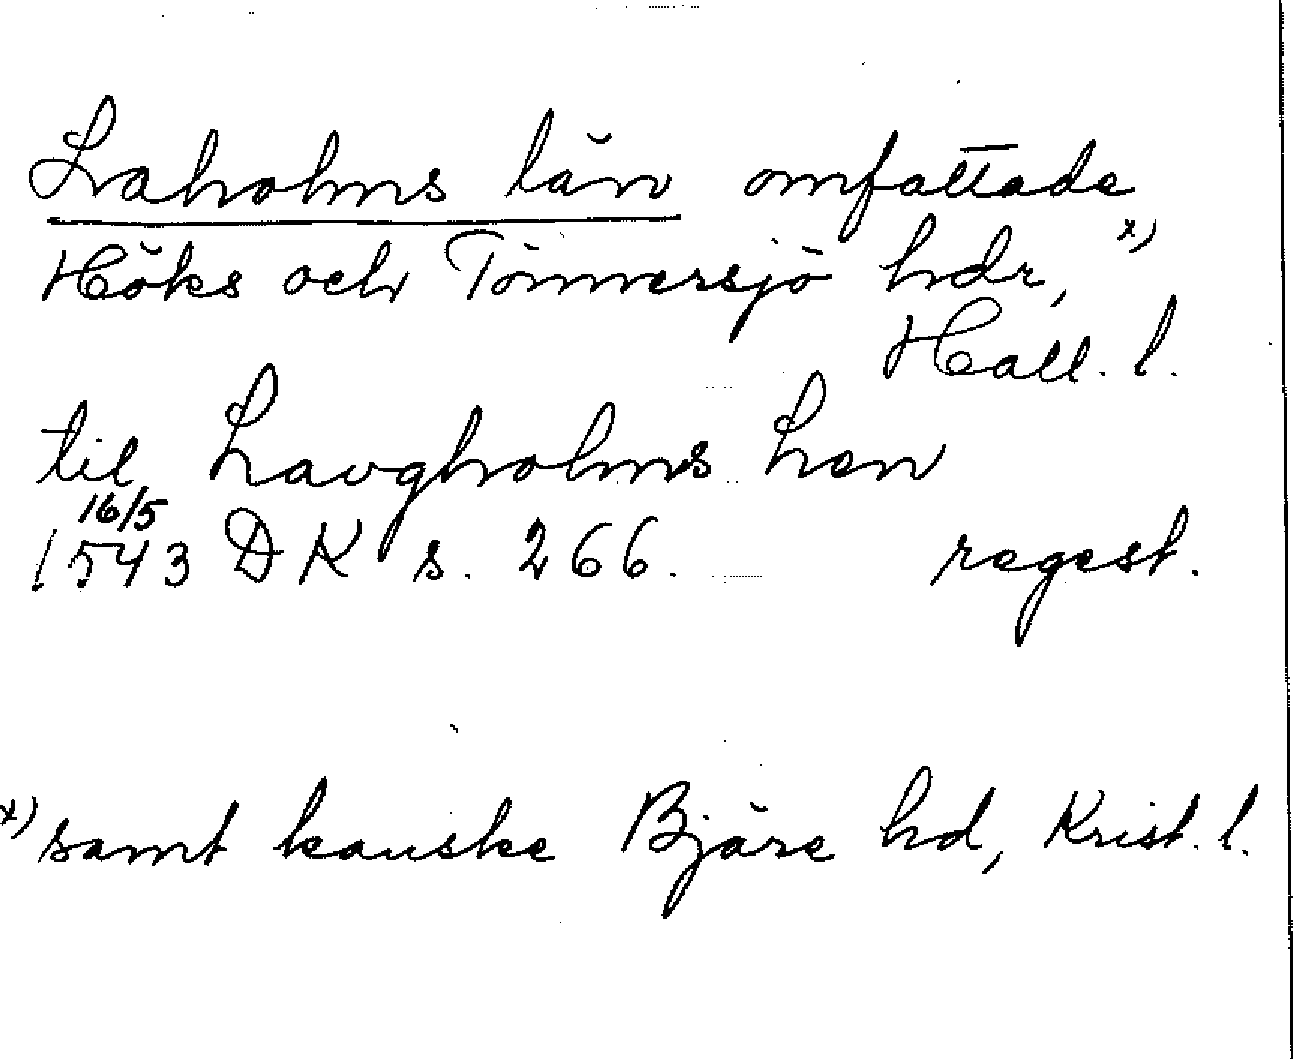 Laholms län omfattade
Höks och Tönnersjö hdr, x)
Hall. l.
til Laugholms Len
16/5
1543 DK s. 266. regest.
x) samt kanske Bjäre hd, Krist. l.